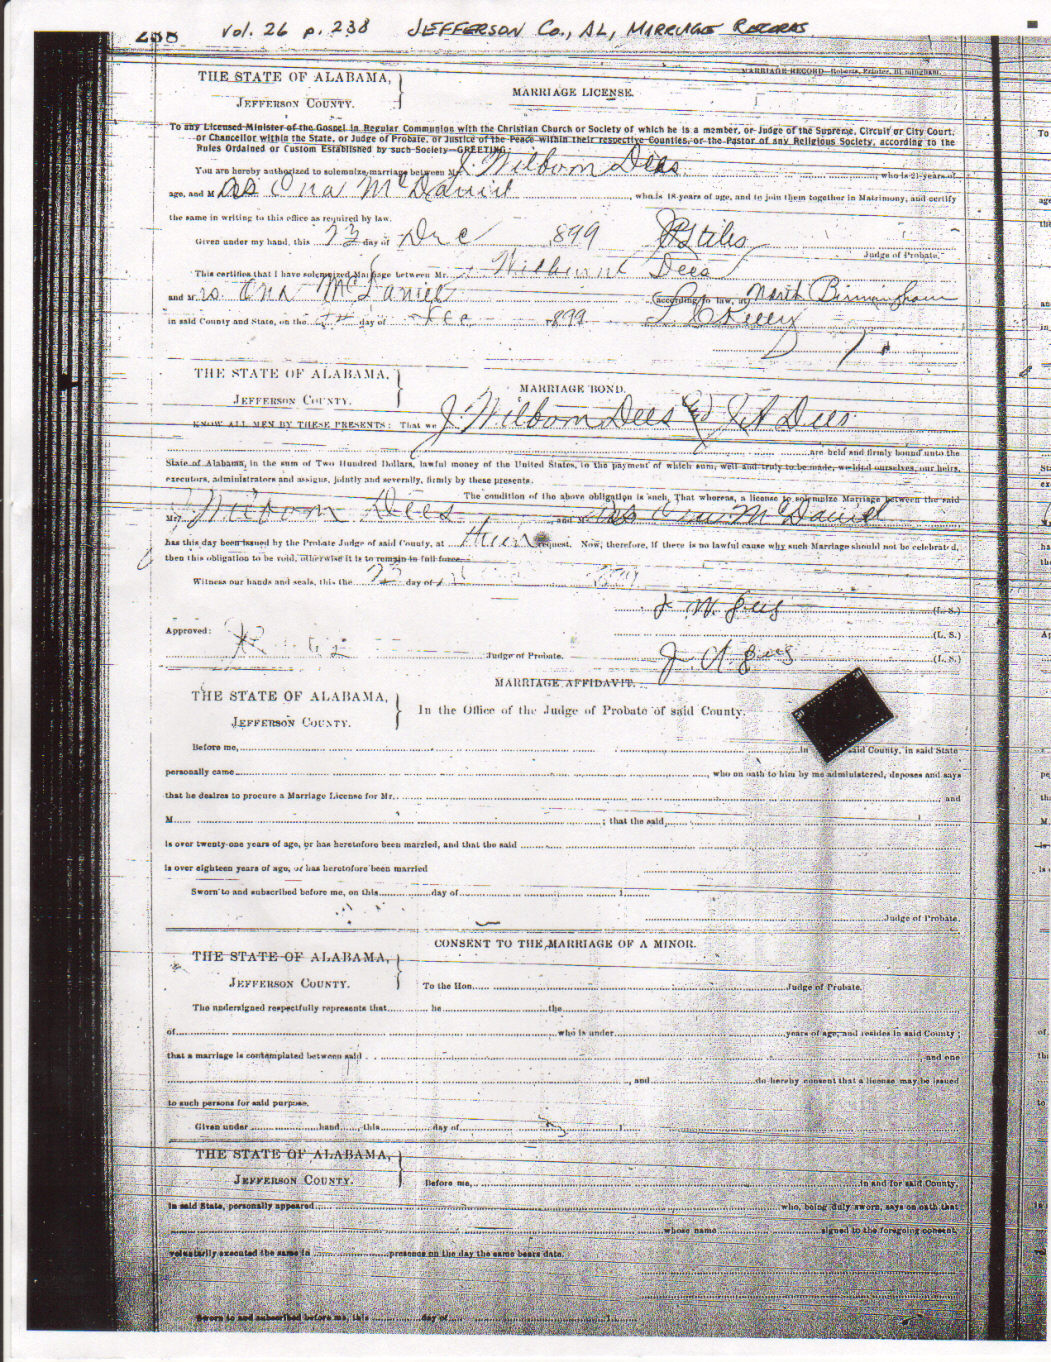 Vol. 26 p. 238 JEFFERSON CO., AL, MARRIAGE RECORDS
238
MARRIAGE RECORD—Roberts, Printer, Birmingham.
THE STATE OF ALABAMA,
JEFFERSON COUNTY.
MARRIAGE LICENSE.
To any Licensed Minister of the Gospel in Regular Communion with the Christian Church or Society of which he is a member, or Judge of the Supreme, Circuit or City Court,
or Chancellor within the State, or Judge of Probate, or Justice of the Peace within their respective Counties, or the Pastor of any Religious Society, according to the
Rules Ordained or Custom Established by such Society—GREETING:
You are hereby authorized to solemnize marriage between Mr. J. Wilborn Dees, who is 21 years of
age, and M iss Ona McDaniel, who is 18 years of age, and to join them together in Matrimony, and certify
the same in writing to this office as required by law.
Given under my hand, this 23 day of Dec 1899 J P Stiles
Judge of Probate.
This certifies that I have solemnized Marriage between Mr. Wilburne Dees
and M iss Ona McDaniel according to law, at North Birmingham
in said County and State, on the day of Dec 1899
THE STATE OF ALABAMA,
JEFFERSON COUNTY.
MARRIAGE BOND.
KNOW ALL MEN BY THESE PRESENTS: That we J. Wilborn Dees and J A Dees
are held and firmly bound unto the
State of Alabama, in the sum of Two Hundred Dollars, lawful money of the United States, to the payment of which sum, well and truly to be made, we bind ourselves, our heirs,
executors, administrators and assigns, jointly and severally, firmly by these presents.
The condition of the above obligation is such, That whereas, a license to solemnize Marriage between the said
Mr. J Wilborn Dees and M iss Ona McDaniel
has this day been issued by the Probate Judge of said County, at their request. Now, therefore, if there is no lawful cause why such Marriage should not be celebrated,
then this obligation to be void, otherwise it is to remain in full force.
Witness our hands and seals, this the 23 day of
J W Dees (L. S.)
(L. S.)
Approved:
Judge of Probate.
J. A. Dees (L. S.)
MARRIAGE AFFIDAVIT.
THE STATE OF ALABAMA,
JEFFERSON COUNTY.
In the Office of the Judge of Probate of said County.
Before me, in said County, in said State
personally came, who on oath to him by me administered, deposes and says
that he desires to procure a Marriage License for Mr. ; and
M ; that the said
is over twenty-one years of age, or has heretofore been married, and that the said
is over eighteen years of age, or has heretofore been married
Sworn to and subscribed before me, on this day of 1
Judge of Probate.
CONSENT TO THE MARRIAGE OF A MINOR.
THE STATE OF ALABAMA,
JEFFERSON COUNTY.
To the Hon. Judge of Probate.
The undersigned respectfully represents that he the
of who is under years of age, and resides in said County;
that a marriage is contemplated between said , and one
, and do hereby consent that a license may be issued
to such persons for said purpose.
Given under hand, this day of 1
THE STATE OF ALABAMA,
JEFFERSON COUNTY.
Before me, in and for said County,
in said State, personally appeared who, being duly sworn, says on oath that
whose name signed to the foregoing consent,
voluntarily executed the same in presence on the day the same bears date.
Sworn to and subscribed before me, this day of 1